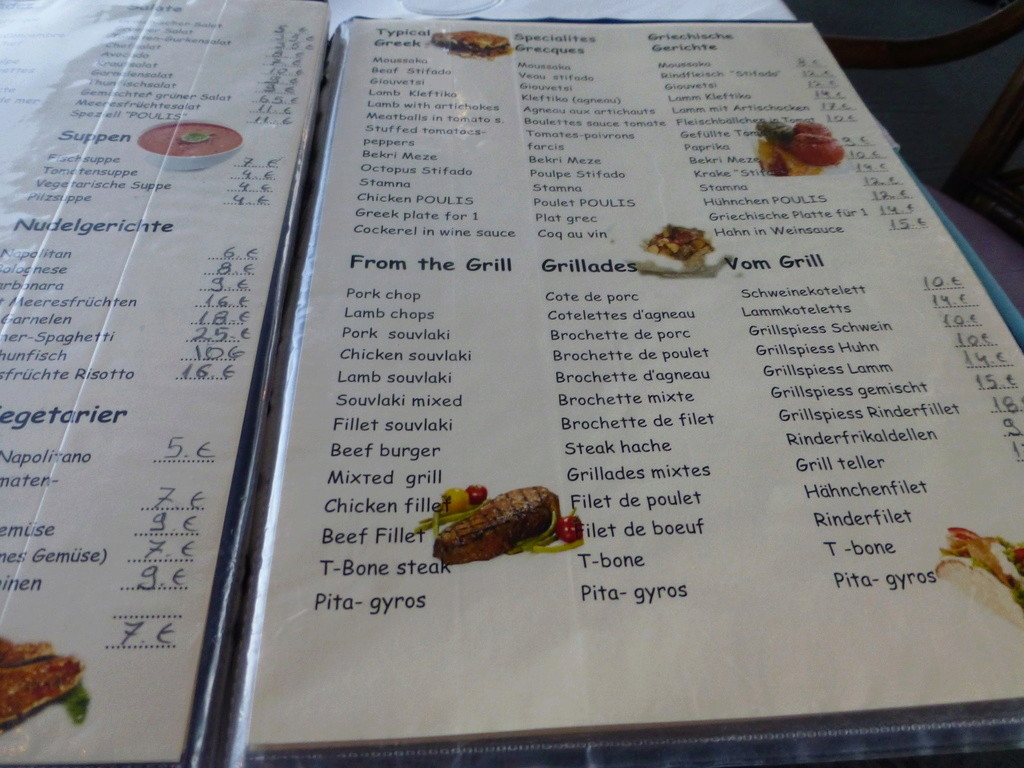 Salate
Gurkensalat
Krautsalat
Garnelensalat
Thunfischsalat
Gemischter grüner Salat 6.5 €
Meeresfrüchtesalat 11. €
Speziell "POULIS" 11. €
Suppen
Fischsuppe 7. €
Tomatensuppe 4. €
Vegetarische Suppe 4. €
Pilzsuppe 4. €
Nudelgerichte
Napolitan 6. €
8. €
9. €
Meeresfrüchten 16. €
Garnelen 18. €
Spaghetti 25. €
10 €
Risotto 16. €
Napolitano 5. €
7. €
9. €
Gemüse) 7. €
9. €
7. €
Typical
Greek
Moussaka
Beef Stifado
Giouvetsi
Lamb Kleftika
Lamb with artichokes
Meatballs in tomato s.
Stuffed tomatoes-
peppers
Bekri Meze
Octopus Stifado
Stamna
Chicken POULIS
Greek plate for 1
Cockerel in wine sauce
Specialites
Grecques
Moussaka
Veau stifado
Giouvetsi
Kleftika (agneau)
Agneau aux artichauts
Boulettes sauce tomate
Tomates-poivrons
farcis
Bekri Meze
Poulpe Stifado
Stamna
Poulet POULIS
Plat grec
Coq au vin
Griechische
Gerichte
Moussaka 8. €
Rindfleisch "Stifado" 12. €
Giouvetsi 12. €
Lamm Kleftika 14. €
Lamm mit Artischocken 17. €
Fleischbällchen in Tomat 10. €
Gefüllte
Paprika 9. €
Bekri Meze 10. €
Krake 14. €
Stamna 12. €
Hühnchen POULIS 12. €
Griechische Platte für 1 14. €
Hahn in Weinsauce 15. €
From the Grill
Pork chop
Lamb chops
Pork souvlaki
Chicken souvlaki
Lamb souvlaki
Souvlaki mixed
Fillet souvlaki
Beef burger
Mixтed grill
Chicken fillet
Beef Fillet
T-Bone steak
Pita- gyros
Grillades
Cote de porc
Cotelettes d'agneau
Brochette de porc
Brochette de poulet
Brochette d'agneau
Brochette mixte
Brochette de filet
Steak hache
Grillades mixtes
Filet de poulet
Filet de boeuf
T-bone
Pita- gyros
Vom Grill
Schweinekotelett 10. €
Lammkoteletts 14. €
Grillspiess Schwein 10. €
Grillspiess Huhn 10. €
Grillspiess Lamm 14. €
Grillspiess gemischt 15. €
Grillspiess Rinderfillet 18.
Rinderfrikaldellen 9
Grill teller
Hähnchenfilet
Rinderfilet
T -bone
Pita- gyros